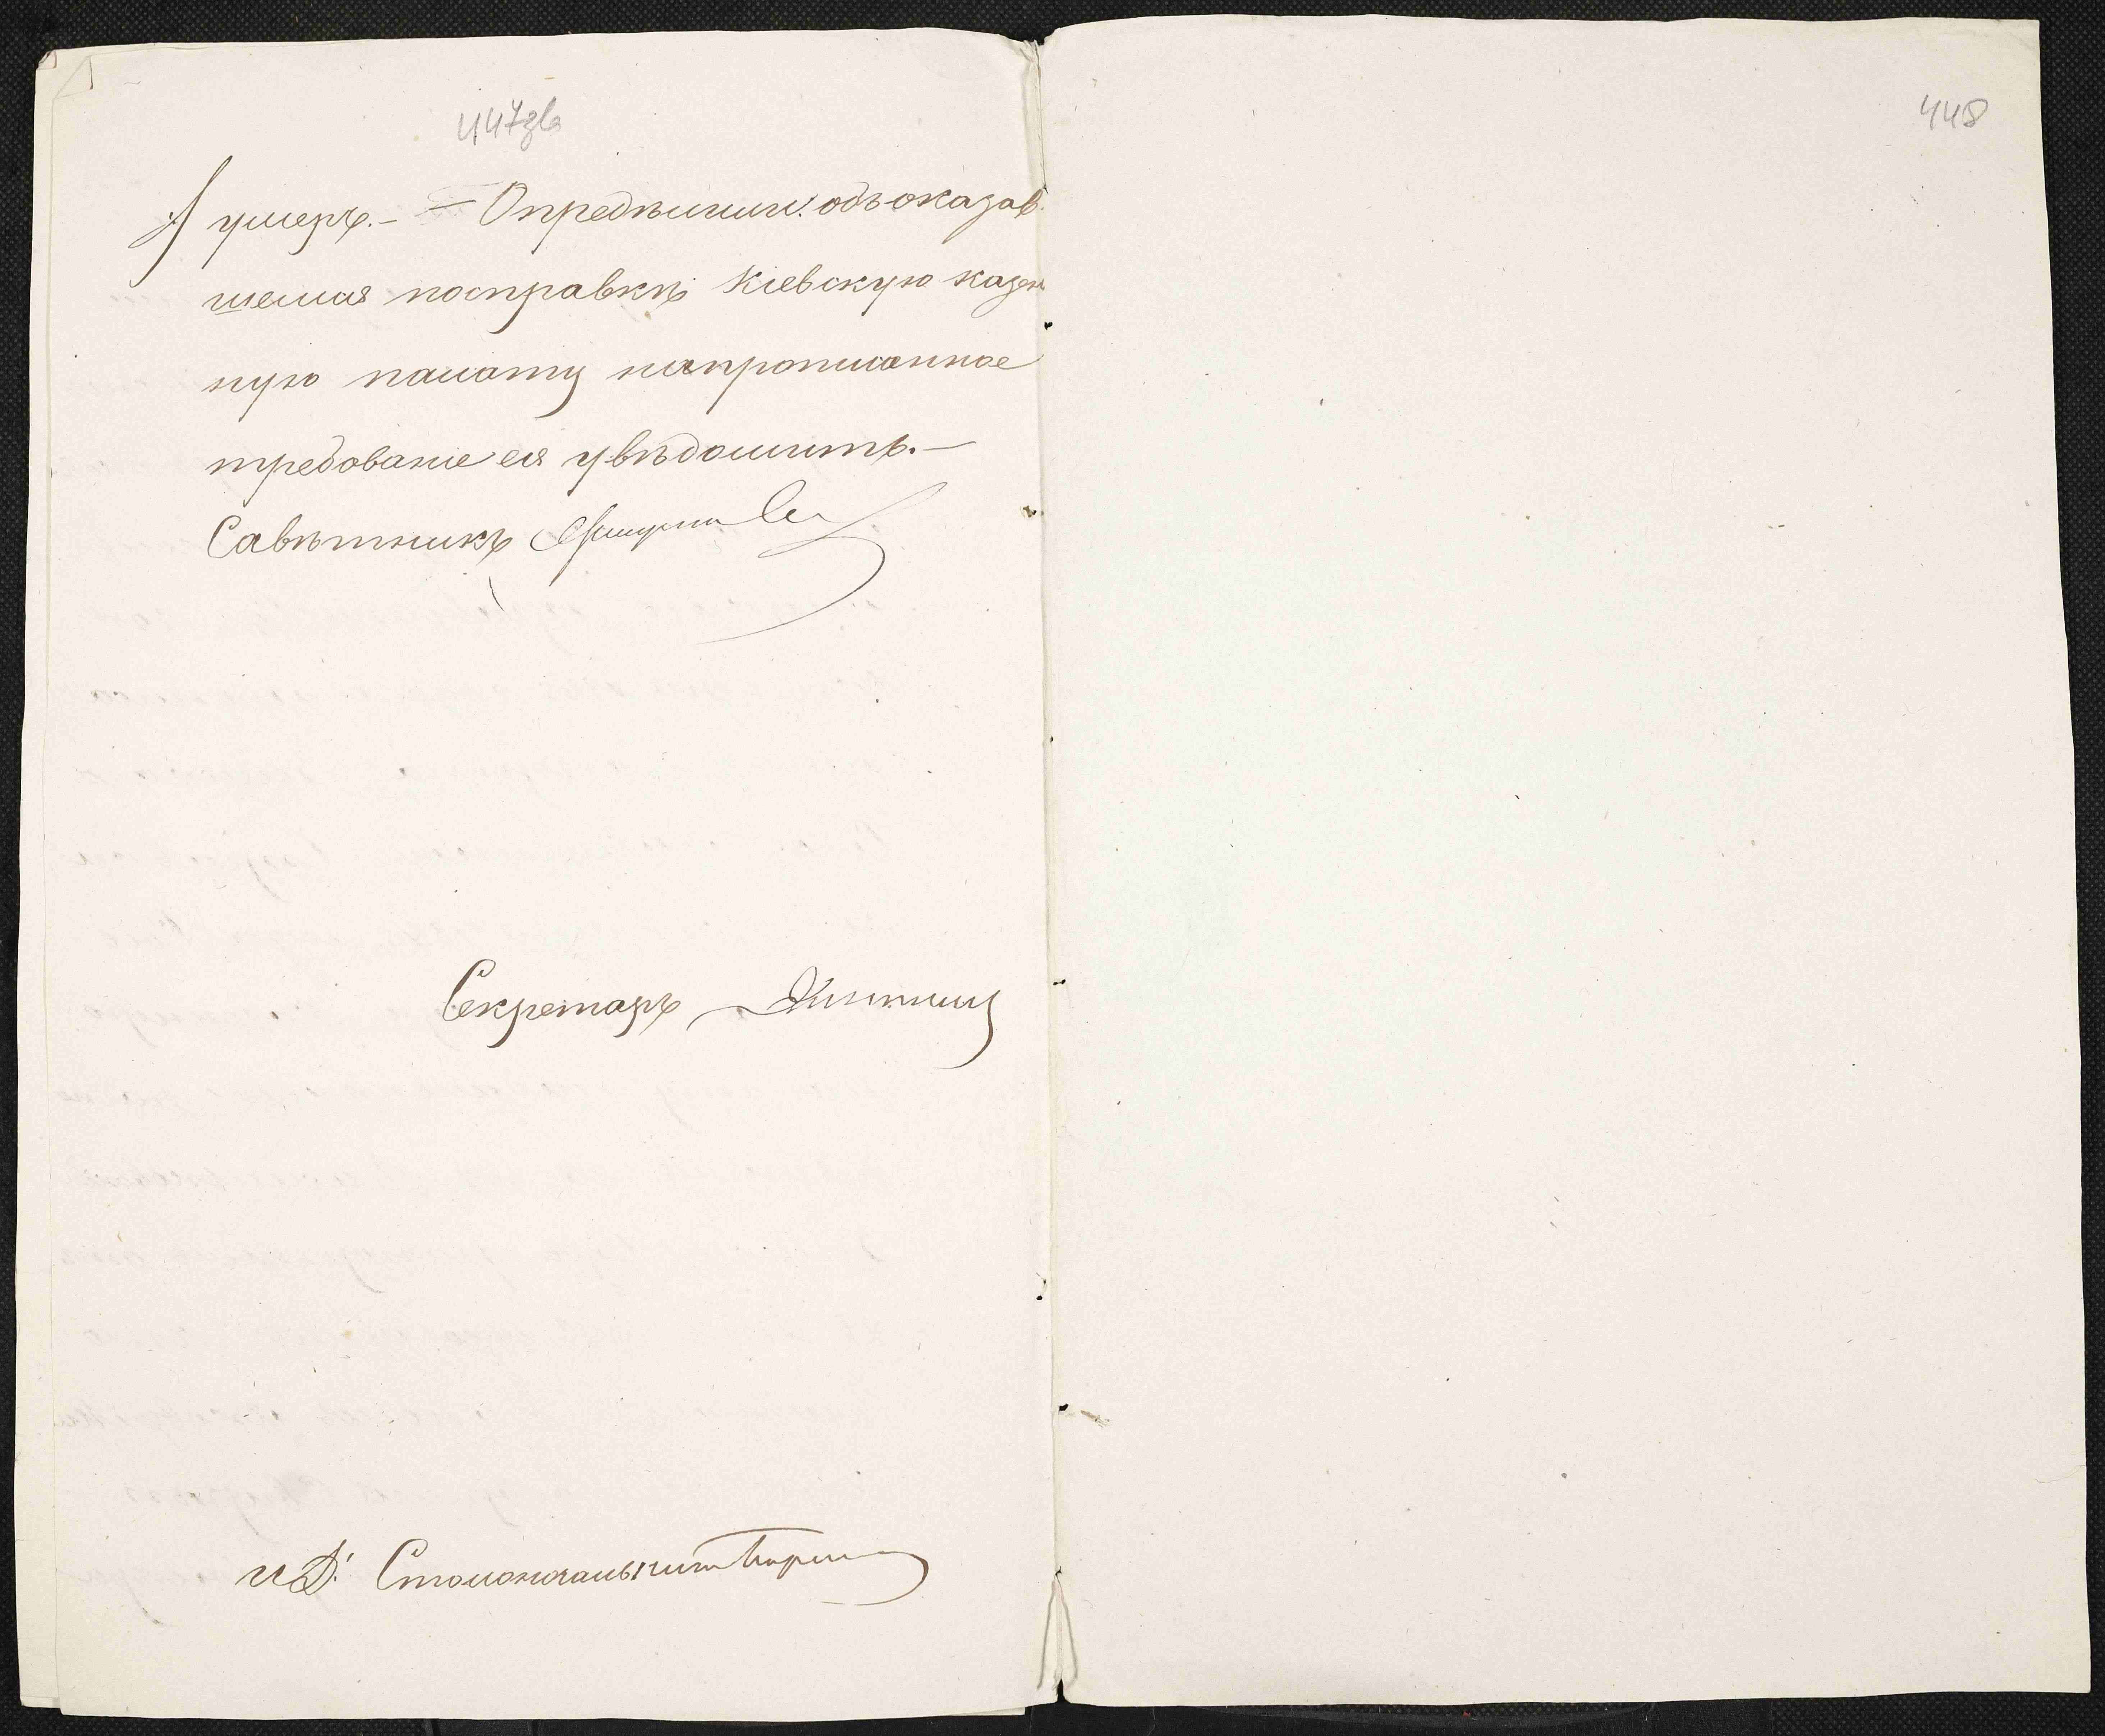 447зв
умеръ. — Определили: объ оказав
шемся посправкѣ Кіевскую казен
ную палату напрописанное
требованіе ея увѣдомить. —
Савѣтникъ
Секретарь
И Д: Столоначальника
448